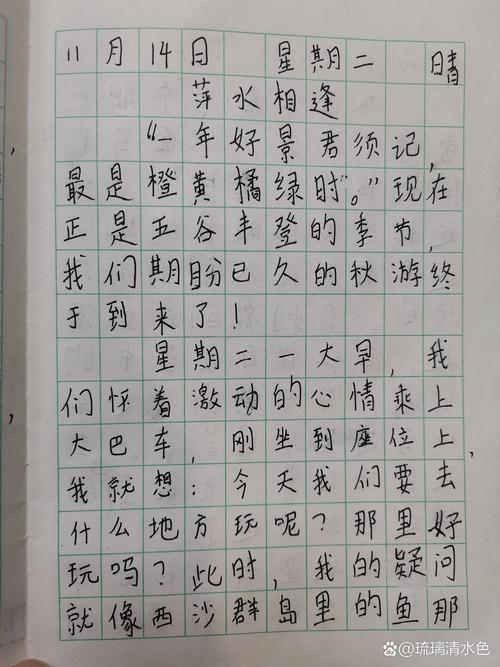 11月14日 星期二 晴
萍水相逢
“一年好景君须记,
最是橙黄橘绿时”。”现在
正是五谷丰登的季节,
我们期盼已久的秋游终
于到来了!
星期二一大早,我
们怀着激动的心情乘上
大巴车,刚坐到座位上,
我就想:今天我们要去
什么地方玩呢?那里好
玩吗?此时,我的疑问
就像西沙群岛里的鱼那
@琉璃清水色